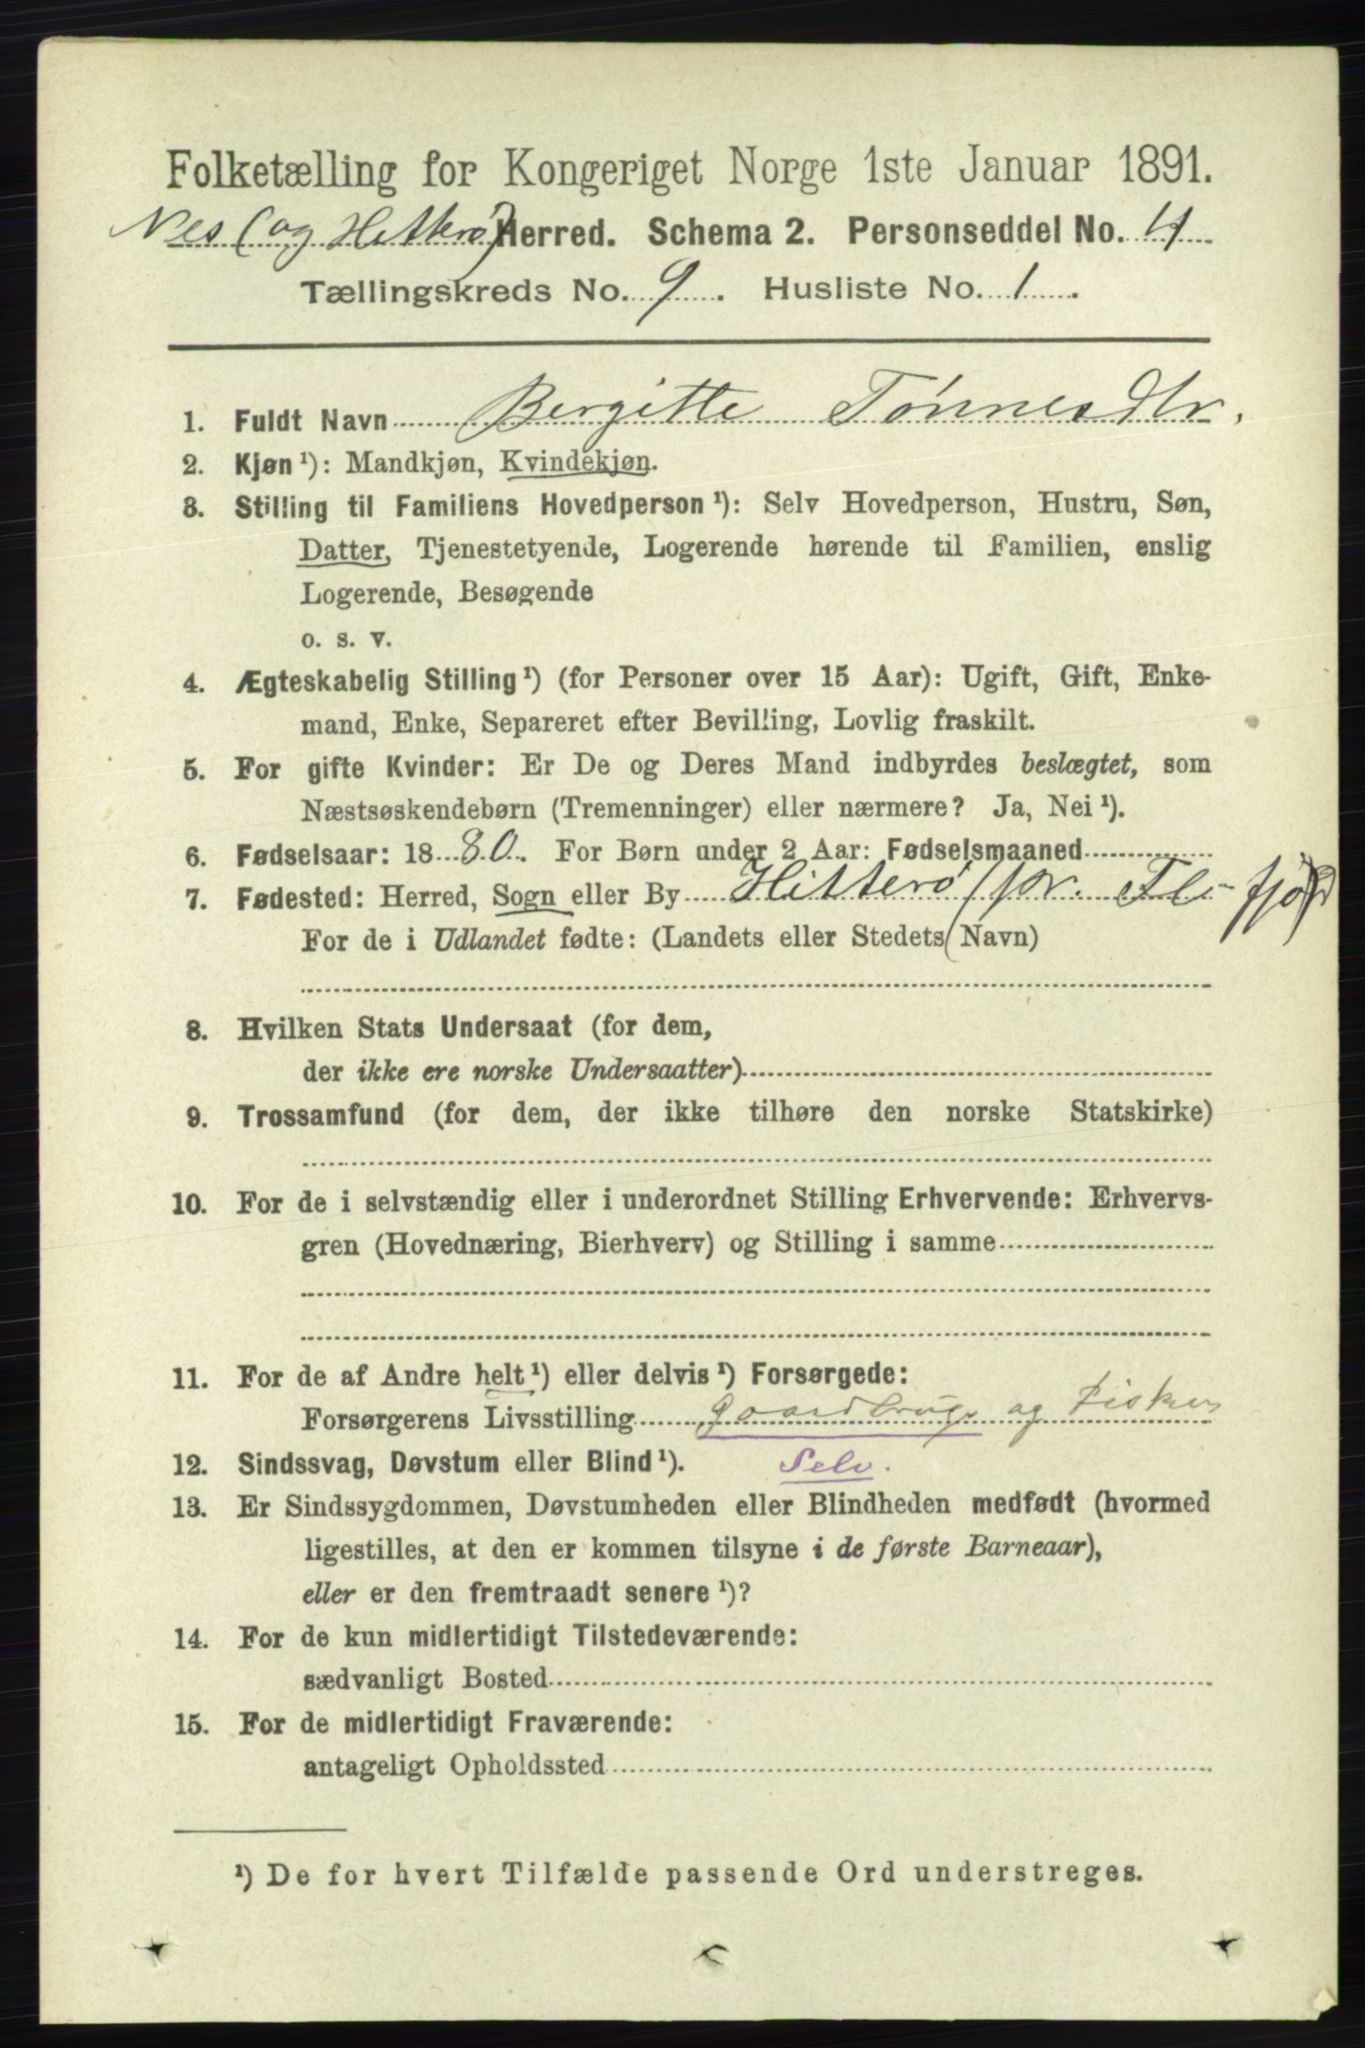 Folketælling for Kongeriget Norge 1ste Januar 1891.
Nes (og Hitterø) Herred. Schema 2. Personseddel No. 4
Tællingskreds No. 9. Husliste No. 1.
1. Fuldt Navn Bergitte Tønnesdtr.
2. Kjøn ¹): Mandkjøn, Kvindekjøn.
3. Stilling til Familiens Hovedperson ¹): Selv Hovedperson, Hustru, Søn,
Datter, Tjenestetyende, Logerende hørende til Familien, enslig
Logerende, Besøgende
o. s. v.
4. Ægteskabelig Stilling ¹) (for Personer over 15 Aar): Ugift, Gift, Enke-
mand, Enke, Separeret efter Bevilling, Lovlig fraskilt.
5. For gifte Kvinder: Er De og Deres Mand indbyrdes beslægtet, som
Næstsøskendebørn (Tremenninger) eller nærmere? Ja, Nei ¹).
6. Fødselsaar: 1880. For Børn under 2 Aar: Fødselsmaaned
7. Fødested: Herred, Sogn eller By Hitterø (pr. Flekkefjord)
For de i Udlandet fødte: (Landets eller Stedets Navn)
8. Hvilken Stats Undersaat (for dem,
der ikke ere norske Undersaatter)
9. Trossamfund (for dem, der ikke tilhøre den norske Statskirke)
10. For de i selvstændig eller i underordnet Stilling Erhvervende: Erhvervs-
gren (Hovednæring, Bierhverv) og Stilling i samme
11. For de af Andre helt ¹) eller delvis ¹) Forsørgede:
Forsørgerens Livsstilling Gaardbruger og Fisker
12. Sindssvag, Døvstum eller Blind ¹). Selv.
13. Er Sindssygdommen, Døvstumheden eller Blindheden medfødt (hvormed
ligestilles, at den er kommen tilsyne i de første Barneaar),
eller er den fremtraadt senere ¹)?
14. For de kun midlertidigt Tilstedeværende:
sædvanligt Bosted
15. For de midlertidigt Fraværende:
antageligt Opholdssted
¹) De for hvert Tilfælde passende Ord understreges.